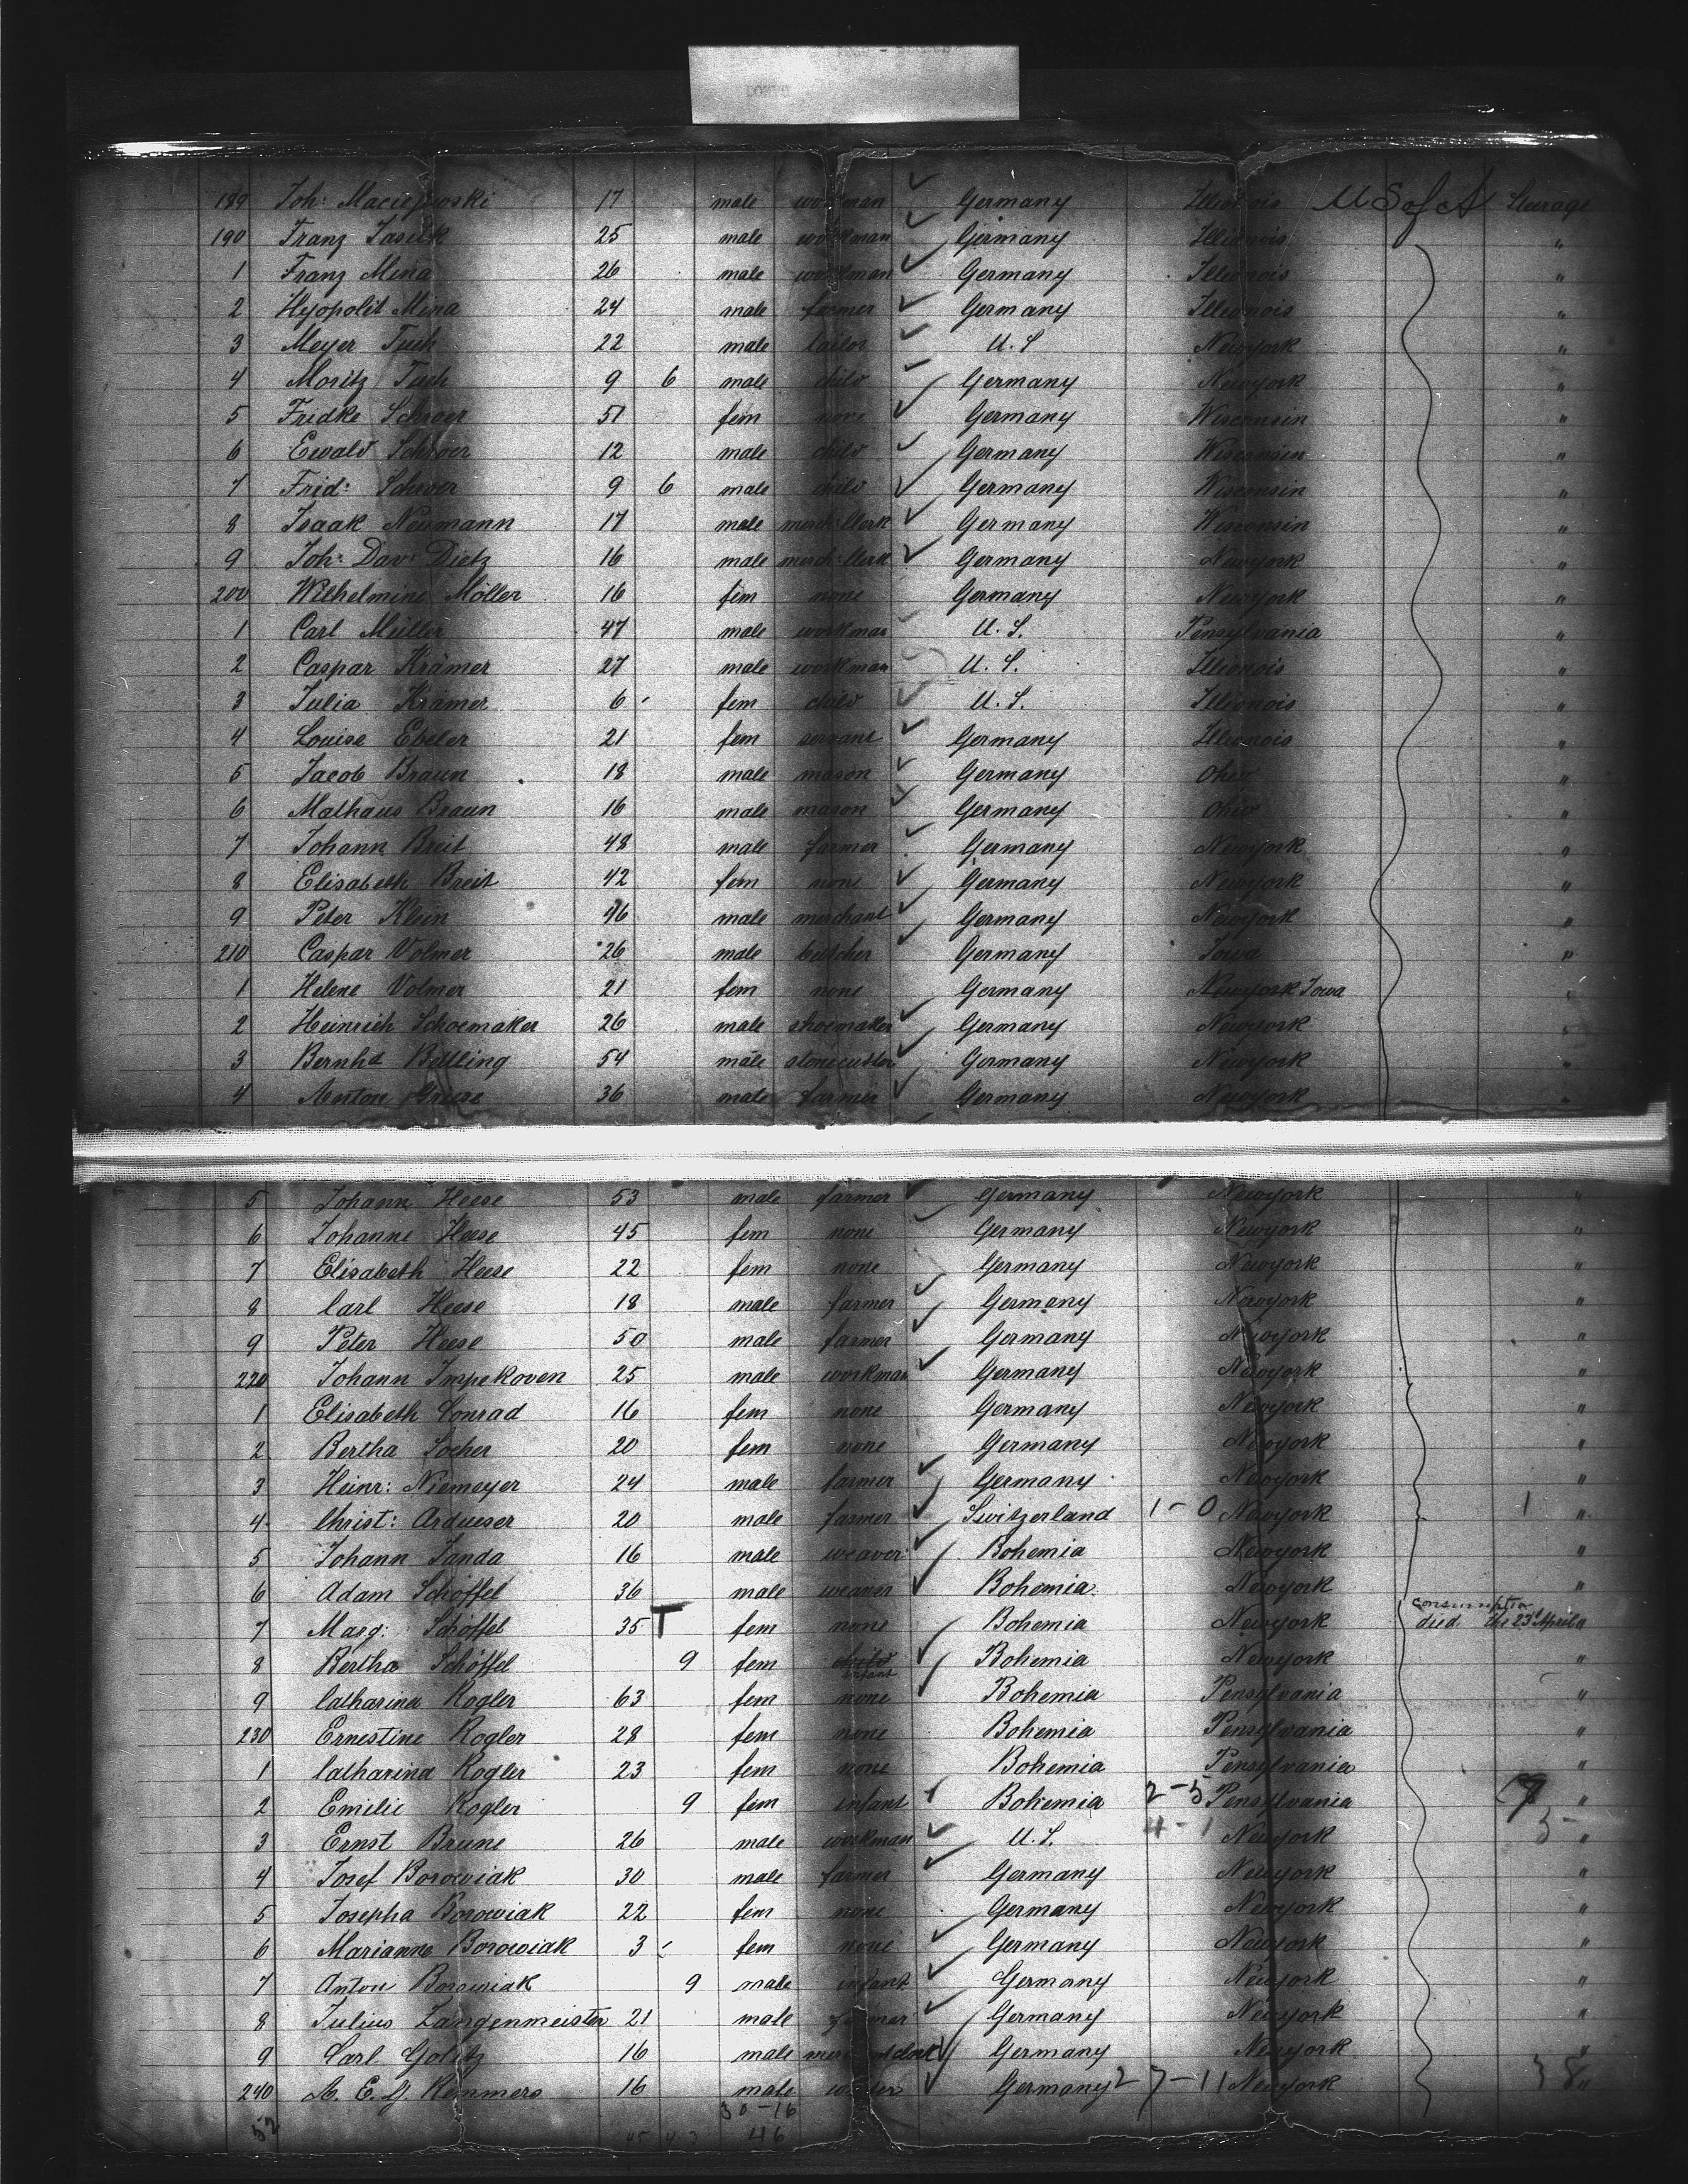 189 Joh: Maciejewski 17 male workman Germany Illionois U S of A Steerage
190 Franz Jasick 25 male workman Germany Illionois "
1 Franz Mina 26 male workman Germany Illionois "
2 Hyopolit Mina 24 male farmer Germany Illionois "
3 Meyer Tuch 22 male tailor U. S Newyork "
4 Moritz Tuch 9 6 male child Germany Newyork "
5 Fridke Schroer 51 fem none Germany Wisconsin "
6 Ewald Schroer 12 male child Germany Wisconsin "
7 Frid: Schroer 9 6 male child Germany Wisconsin "
8 Isaak Neumann 17 male merch: Clerk Germany Wisconsin "
9 Joh: Dav: Dietz 16 male merch: Clerk Germany Newyork "
200 Wilhelmine Möller 16 fem none Germany Newyork "
1 Carl Müller 47 male workman U. S. Pensylvania "
2 Caspar Krämer 27 male workman U. S. Illionois "
3 Julia Krämer 6 fem child U. S. Illionois "
4 Louise Ebeler 21 fem servant Germany Illionois "
5 Jacob Braun 18 male mason Germany Ohio "
6 Mathaus Braun 16 male mason Germany Ohio "
7 Johann Breit 48 male farmer Germany Newyork "
8 Elisabeth Breit 42 fem none Germany Newyork "
9 Peter Klein 46 male merchant Germany Newyork "
210 Caspar Volmer 26 male butcher Germany Iowa "
1 Helene Volmer 21 fem none Germany Newyork Iowa "
2 Heinrich Schoemaker 26 male shoemaker Germany Newyork "
3 Bernhd Bölling 54 male stonecutter Germany Newyork "
4 Anton Griese 36 male farmer Germany Newyork "
5 Johann Heese 53 male farmer Germany Newyork "
6 Johanne Heese 45 fem none Germany Newyork "
7 Elisabeth Heese 22 fem none Germany Newyork "
8 Carl Heese 18 male farmer Germany Newyork "
9 Peter Heese 50 male farmer Germany Newyork "
220 Johann Impekoven 25 male workman Germany Newyork "
1 Elisabeth Conrad 16 fem none Germany Newyork "
2 Bertha Locher 20 fem none Germany Newyork "
3 Heinr: Niemeyer 24 male farmer Germany Newyork "
4 Christ: Ardueser 20 male farmer Switzerland 1-0 Newyork 1 "
5 Johann Janda 16 male weaver Bohemia Newyork "
6 Adam Schöffel 36 male weaver Bohemia Newyork "
7 Marg: Schöffel 35 T fem none Bohemia Newyork consumption died the 23d April "
8 Bertha Schöffel 9 fem child infant Bohemia Newyork "
9 Catharina Rogler 63 fem none Bohemia Pensylvania "
230 Ernestine Rogler 28 fem none Bohemia Pensylvania "
1 Catharina Rogler 23 fem none Bohemia Pensylvania "
2 Emilie Rogler 9 fem infant Bohemia 2-5 Pensylvania "
3 Ernst Brune 26 male workman U. S. 4-1 Newyork 3- "
4 Josef Borowiak 30 male farmer Germany Newyork "
5 Josepha Borowiak 22 fem none Germany Newyork "
6 Marianne Borowiak 3 fem none Germany Newyork "
7 Anton Borowiak 9 male infant Germany Newyork "
8 Julius Langenmeister 21 male farmer Germany Newyork "
9 Carl Golitz 16 male merchant clerk Germany Newyork "
240 A. E. G. Remmers 16 male Germany 27-11 Newyork 38 "
52 30-16
46